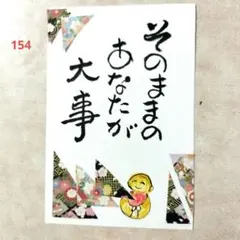 154
そのままの
あなたが
大事